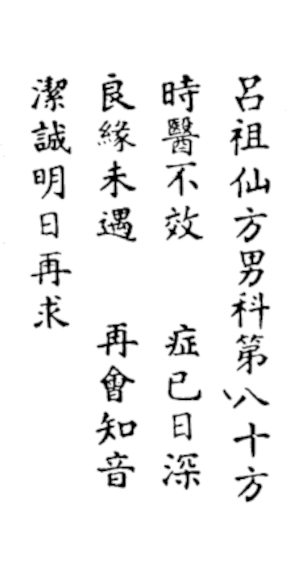 呂祖仙方男科第八十方
時醫不效　症已日深
良緣未遇　再會知音
潔誠明日再求